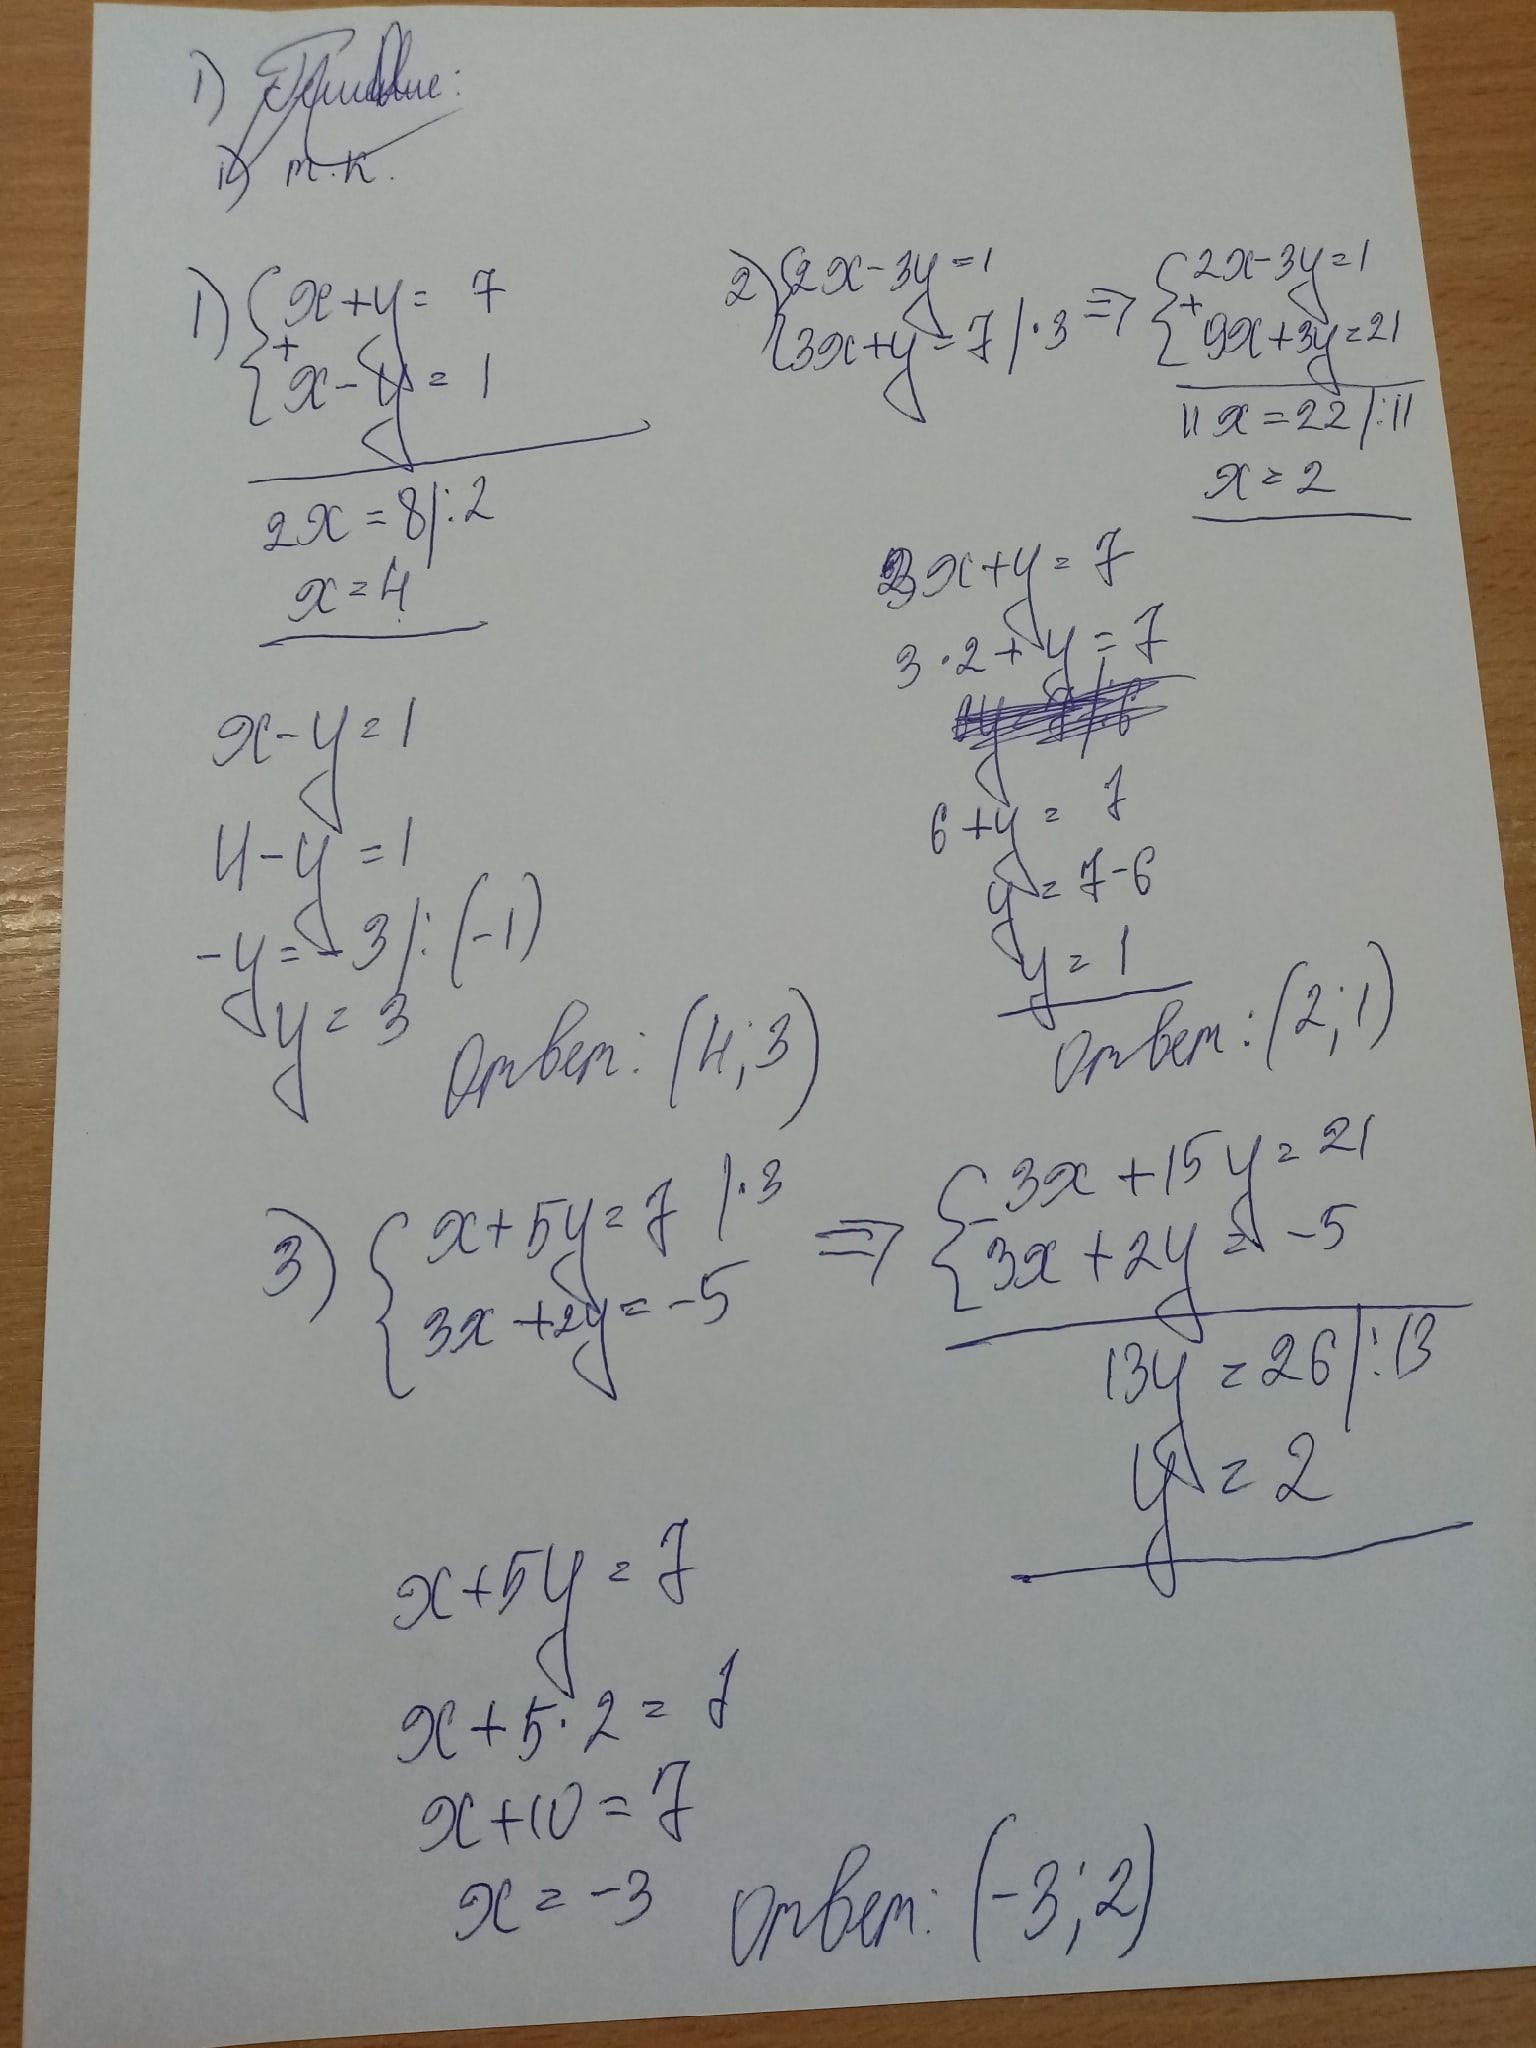 1)
т.к.
1) { x+y = 7
+
x-y = 1
2x = 8 |:2
x = 4
x-y = 1
4-y = 1
-y = -3 |:(-1)
y = 3
Ответ: (4;3)
2) { 2x-3y = 1
3x+y = 7 |·3 => { 2x-3y = 1
+
9x+3y = 21
11x = 22 |:11
x = 2
3x+y = 7
3·2+y = 7
6+y = 7
y = 7-6
y = 1
Ответ: (2;1)
3) { x+5y = 7 |·3
3x+2y = -5 => { 3x+15y = 21
-
3x+2y = -5
13y = 26 |:13
y = 2
x+5y = 7
x+5·2 = 7
x+10 = 7
x = -3
Ответ: (-3;2)